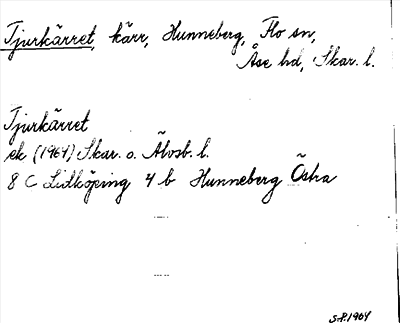 Tjurkärret, kärr, Hunneberg, Flo sn,
Åse hd, Skar. l.
Tjurkärret
ek (1964) Skar. o. Älvsb. l.
8 C Lidköping 4 b Hunneberg Östra
S.P. 1964